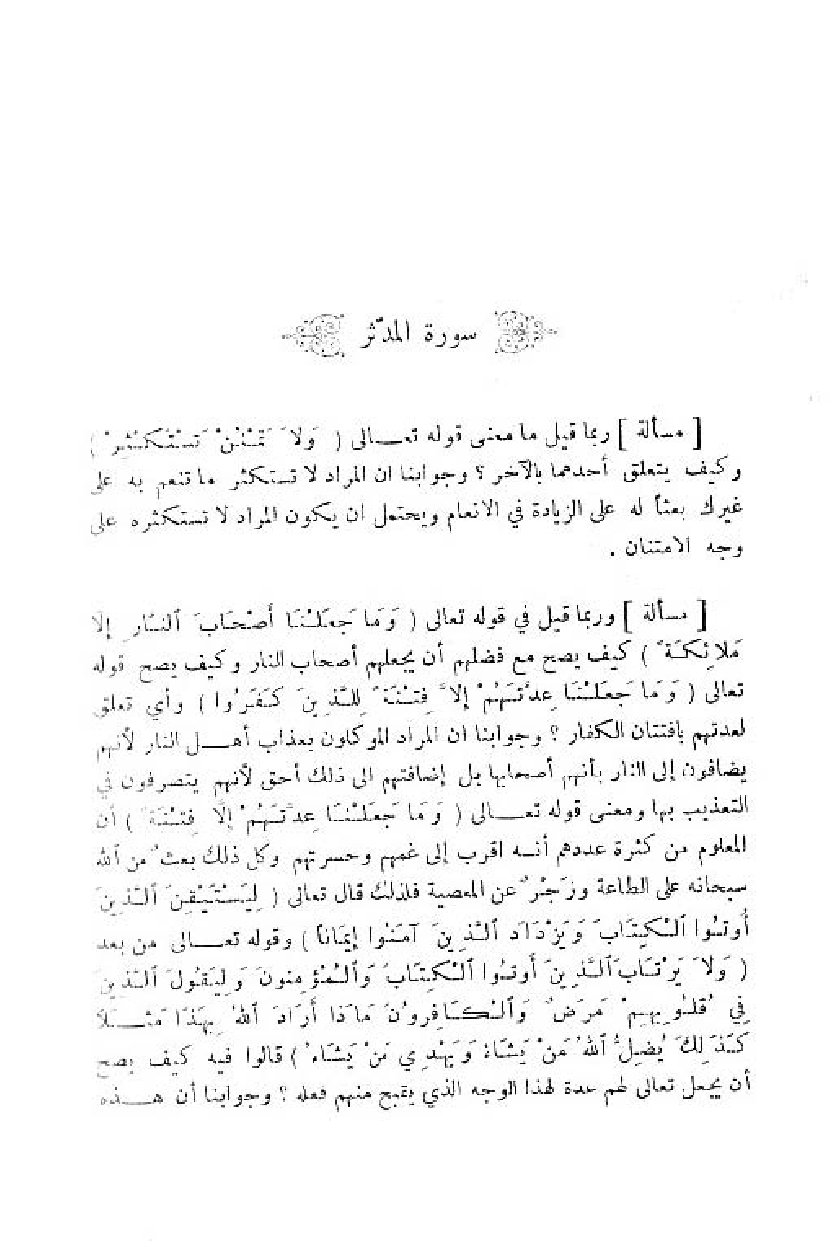 سورة المدّثر
[ مسألة ] ربما قيل ما معنى قوله تعــالى ( وَلاَ تَمْنُنْ تَسْتَكْثِرْ )
وكيف يتعلق أحدهما بالآخر ؟ وجوابنا ان المراد لا تستكثر ما تنعم به على
غيرك بعثاً له على الزيادة في الانعام ويحتمل ان يكون المراد لا تستكثره على
وجه الامتنان .
[ مسألة ] وربما قيل في قوله تعالى ( وَمَا جَعَلْنَا أَصْحَابَ ٱلنَّارِ إِلَّا
مَلاَئِكَةً ) كيف يصح مع فضلهم أن يجعلهم أصحاب النار وكيف يصح قوله
تعالى ( وَمَا جَعَلْنَا عِدَّتَهُمْ إِلاَّ فِتْنَةً لِلَّذِينَ كَفَرُوا ) وأي تعلق
لعدتهم بافتتان الكفار ؟ وجوابنا ان المراد الموكلون بعذاب أهــل النار لأنهم
يضافون إلى النار بأنهم أصحابها بل إضافتهم الى ذلك أحق لأنهم يتصرفون في
التعذيب بها ومعنى قوله تعــالى ( وَمَا جَعَلْنَا عِدَّتَهُمْ إِلَّا فِتْنَةً ) أن
المعلوم من كثرة عددهم أنــه اقرب إلى غمهم وحسرتهم وكل ذلك بعثٌ من ٱلله
سبحانه على الطاعة وزَجْرٌ عن المعصية فلذلك قال تعالى ( لِيَسْتَيْقِنَ ٱلَّذِينَ
أُوتُوا ٱلْكِتَابَ وَيَزْدَادَ ٱلَّذِينَ آمَنُوا إِيمَاناً ) وقوله تعــالى من بعد
( وَلاَ يَرْتَابَ ٱلَّذِينَ أُوتُوا ٱلْكِتَابَ وَٱلْمُؤْمِنونَ وَلِيَقُولَ ٱلَّذِينَ
فِي قُلُوبِهِمْ مَرَضٌ وَٱلْكَافِرُونَ مَاذَا أَرَادَ ٱللهُ بِهَذَا مَثَــلاً
كَذَلِكَ يُضِلُّ ٱللهُ مَنْ يَشَاءُ وَيَهْدِي مَنْ يَشَاءُ ) قالوا فيه كيف يصح
أن يجعل تعالى لهم عدة لهذا الوجه الذي يقبح منهم فعله ؟ وجوابنا أن هــذه